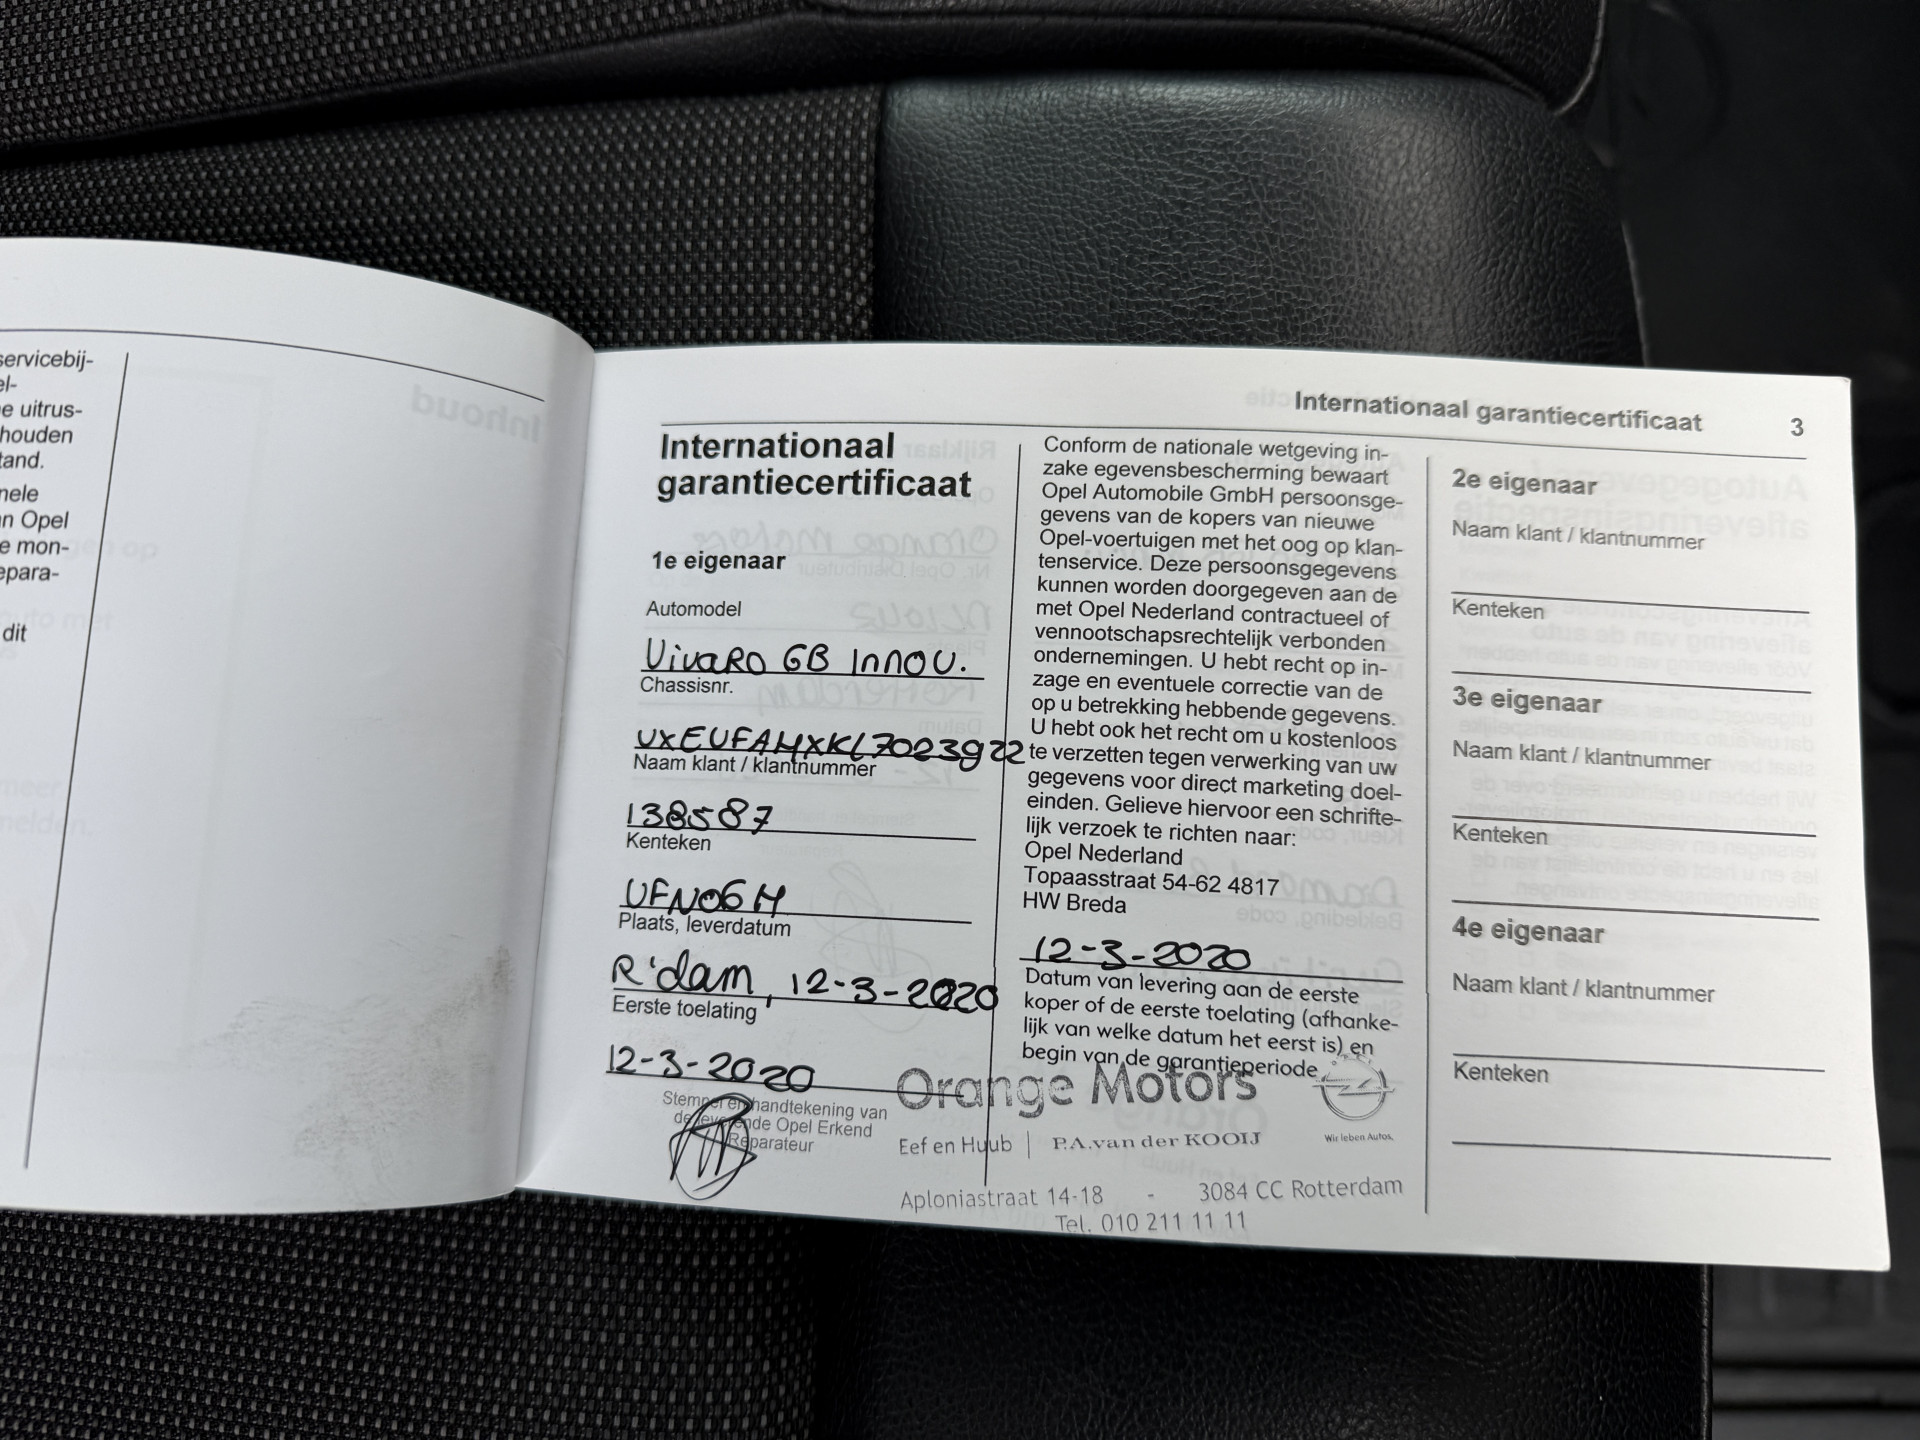 servicebij-
el-
e uitrus-
houden
tand.
nele
n Opel
e mon-
epara-
dit
Internationaal garantiecertificaat 3
Internationaal
garantiecertificaat
1e eigenaar
Automodel
Vivaro GB Innov.
Chassisnr.
VXEVFAHXKL7023922
Naam klant / klantnummer
138587
Kenteken
VFN06H
Plaats, leverdatum
R'dam, 12-3-2020
Eerste toelating
12-3-2020
Stempel en handtekening van
de leverende Opel Erkend
Reparateur
Conform de nationale wetgeving in-
zake egevensbescherming bewaart
Opel Automobile GmbH persoonsge-
gevens van de kopers van nieuwe
Opel-voertuigen met het oog op klan-
tenservice. Deze persoonsgegevens
kunnen worden doorgegeven aan de
met Opel Nederland contractueel of
vennootschapsrechtelijk verbonden
ondernemingen. U hebt recht op in-
zage en eventuele correctie van de
op u betrekking hebbende gegevens.
U hebt ook het recht om u kostenloos
te verzetten tegen verwerking van uw
gegevens voor direct marketing doel-
einden. Gelieve hiervoor een schrifte-
lijk verzoek te richten naar:
Opel Nederland
Topaasstraat 54-62 4817
HW Breda
12-3-2020
Datum van levering aan de eerste
koper of de eerste toelating (afhanke-
lijk van welke datum het eerst is) en
begin van de garantieperiode
Orange Motors
Eef en Huub | P.A. van der KOOIJ
Wir leben Autos.
Aploniastraat 14-18 - 3084 CC Rotterdam
Tel. 010 211 11 11
2e eigenaar
Naam klant / klantnummer
Kenteken
3e eigenaar
Naam klant / klantnummer
Kenteken
4e eigenaar
Naam klant / klantnummer
Kenteken